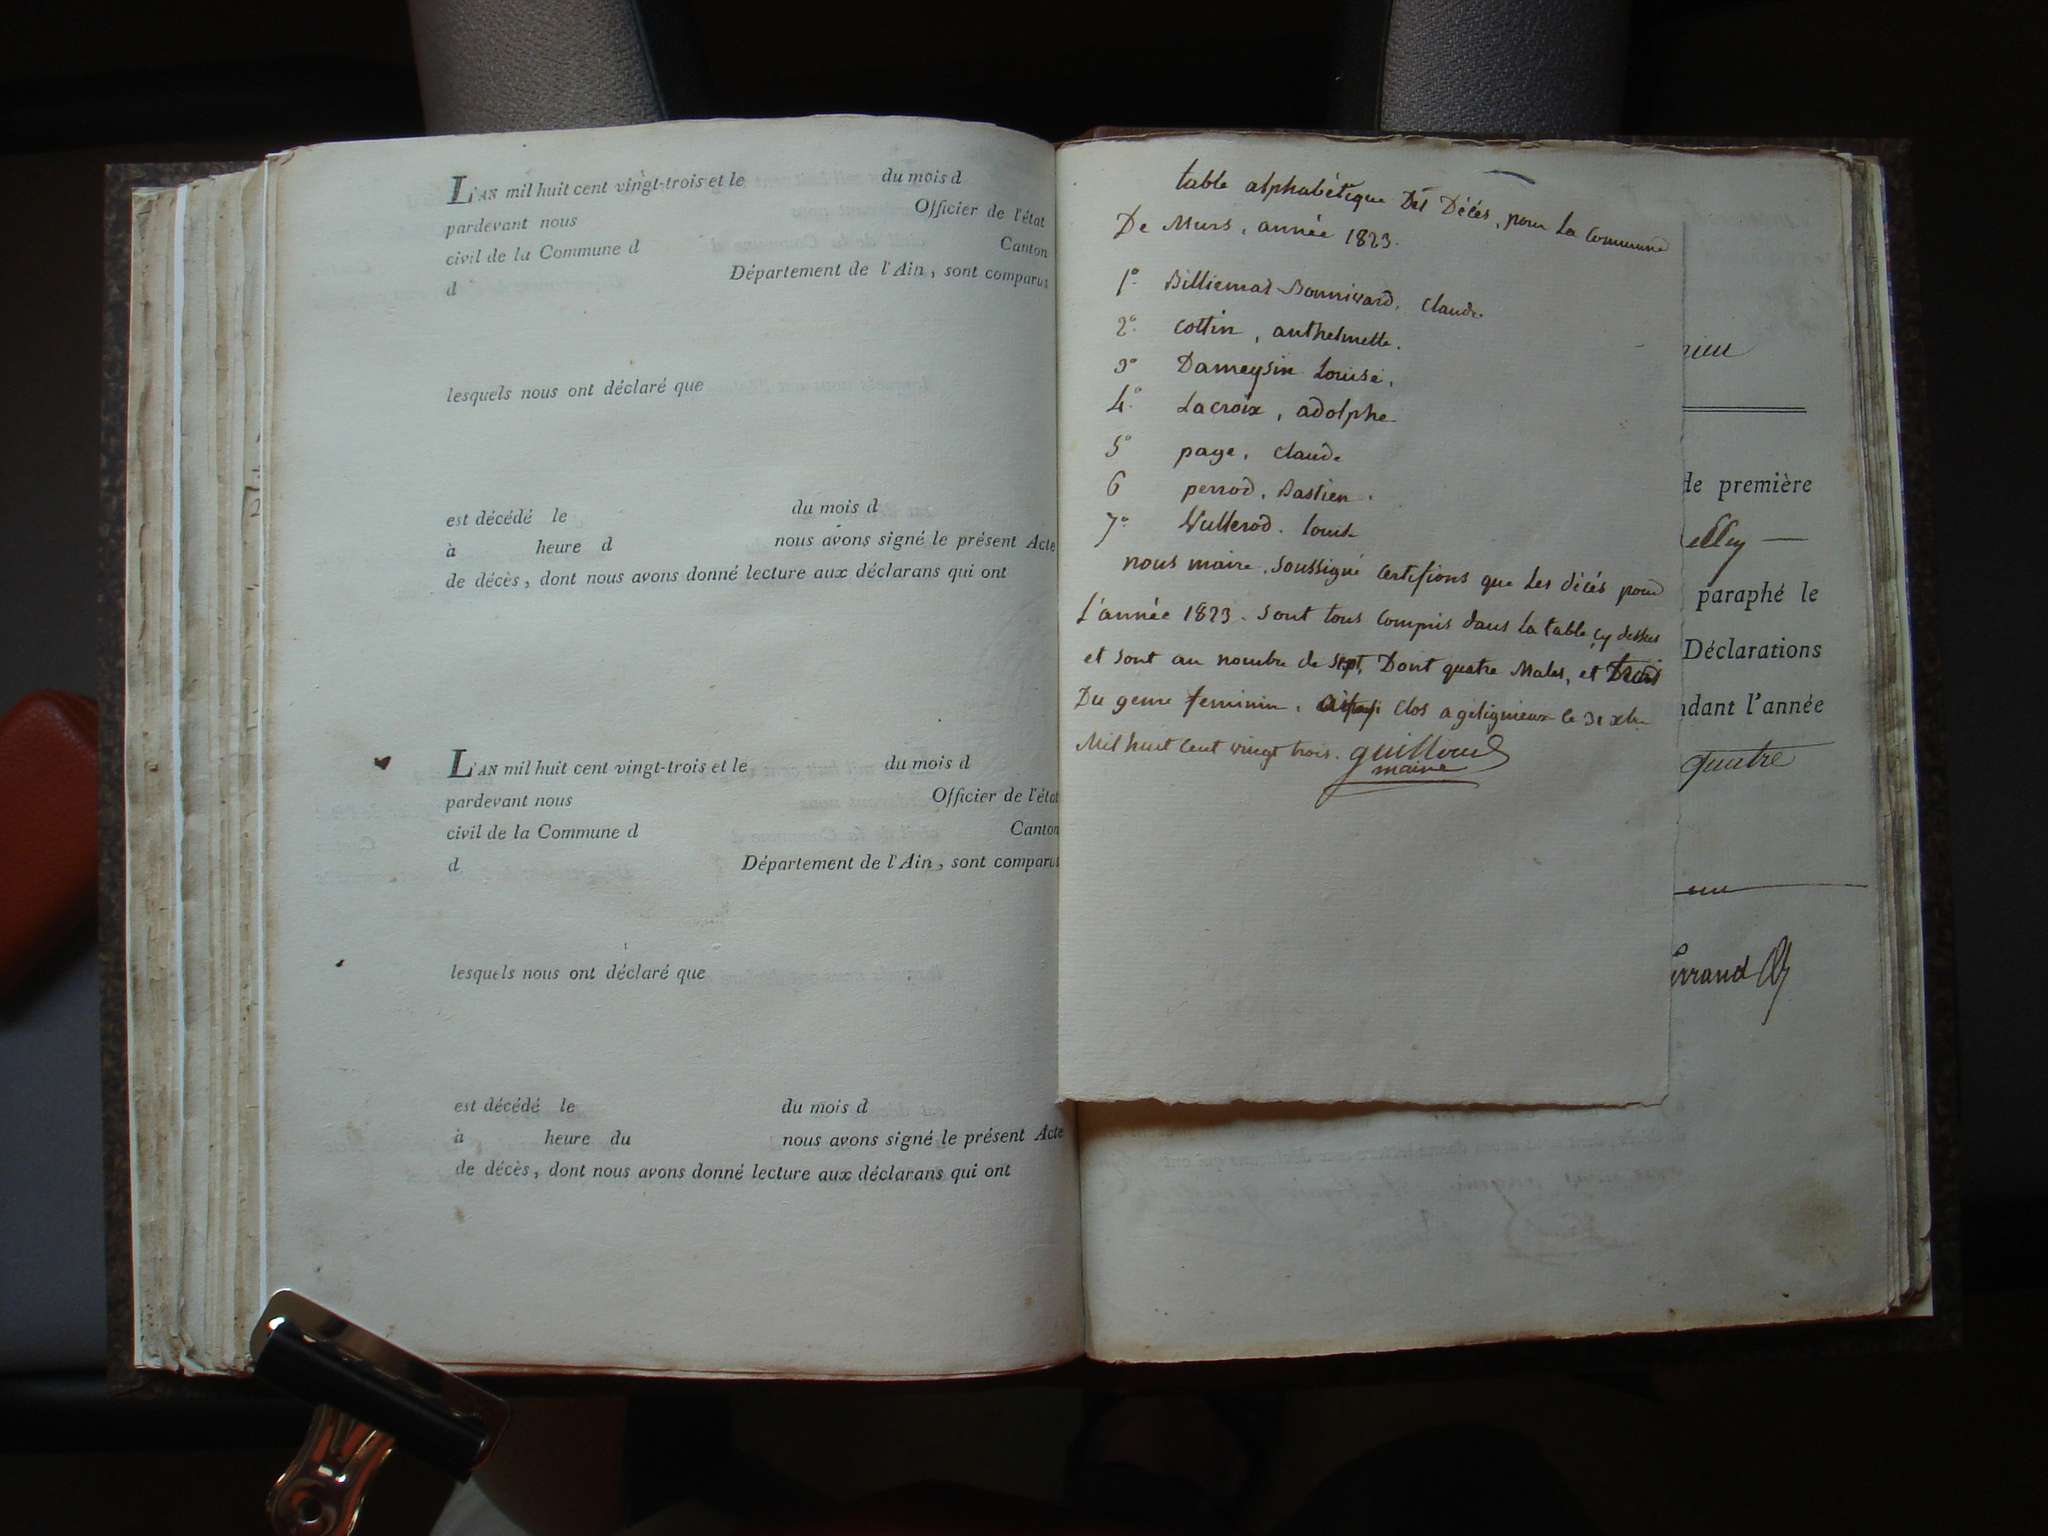 L'AN mil huit cent vingt-trois et le du mois d
pardevant nous Officier de l'état
civil de la Commune d Canton
d Département de l'Ain, sont comparus
lesquels nous ont déclaré que
est décédé le du mois d
à heure d nous avons signé le présent Acte
de décès, dont nous avons donné lecture aux déclarans qui ont
L'AN mil huit cent vingt-trois et le du mois d
pardevant nous Officier de l'état
civil de la Commune d Canton
d Département de l'Ain, sont comparus
lesquels nous ont déclaré que
est décédé le du mois d
à heure du nous avons signé le présent Acte
de décès, dont nous avons donné lecture aux déclarans qui ont
table alphabétique Des Décés, pour La Commune
De Murs, année 1823.
1° Billiemas-Bonnivard, Claude.
2° Cottin, anthelmette.
3° Dameysin Louise,
4° Lacroix, adolphe
5° page, Claude
6 perrod, Bastien.
7° Vullerod. Louise
nous maire, soussigné Certifions que Les décés pour
L'année 1823. sont tous Compris dans La table cy dessus
et sont au nombre de sept, Dont quatre Males, et trois
Du genre feminin, Clos a gélignieux le 31 xbre
Mil huit Cent vingt trois. guilloud
maire
nieu
de première
elley
paraphé le
Déclarations
ndant l'année
quatre
errand